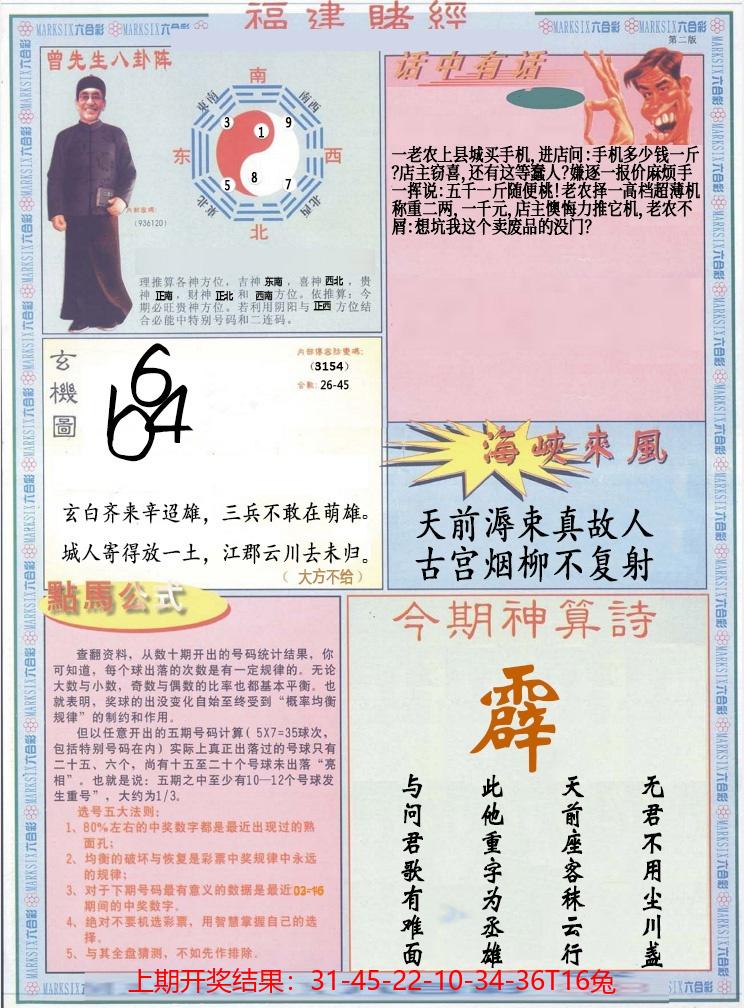 福建賭經
MARKSIX六合彩 MARKSIX六合彩 MARKSIX六合彩 MARKSIX六合彩
第二版
曾先生八卦阵
南
东南
南西
3
1
9
东
西
5
8
7
東北
北西
北
内部密碼:
(936120)
理推算各神方位，吉神东南，喜神西北，贵
神正南，财神正北和西南方位。依推算：今
期必旺贵神方位。若利用阴阳与正西方位结
合必能中特别号码和二连码。
话中有话
一老农上县城买手机,进店问:手机多少钱一斤
?店主窃喜,还有这等蠢人?嫌逐一报价麻烦手
一挥说:五千一斤随便桃!老农择一高档超薄机
称重二两,一千元,店主懊悔力推它机,老农不
屑:想坑我这个卖废品的没门?
玄機圖
664
(3154)
合數: 26-45
玄白齐来辛迢雄，三兵不敢在萌雄。
城人寄得放一土，江郡云川去未归。
（ 大方不给）
海峽來風
天前溽束真故人
古宫烟柳不复射
點馬公式
查翻资料，从数十期开出的号码统计结果，你
可知道，每个球出落的次数是有一定规律的。无论
大数与小数，奇数与偶数的比率也都基本平衡。也
就表明，奖球的出没变化自始至终受到“概率均衡
规律”的制约和作用。
但以任意开出的五期号码计算( 5X7=35球次，
包括特别号码在内) 实际上真正出落过的号球只有
二十五、六个，尚有十五至二十个号球未出落“亮
相”。也就是说：五期之中至少有10—12个号球发
生重号”，大约为1/3。
选号五大法则:
1、80%左右的中奖数字都是最近出现过的熟
面孔；
2、均衡的破坏与恢复是彩票中奖规律中永远
的规律；
3、对于下期号码最有意义的数据是最近03-16
期间的中奖数字。
4、绝对不要机选彩票，用智慧掌握自己的选
择。
5、与其全盘猜测，不如先作排除．
今期神算詩
霹
无君不用尘川盏
天前座客秣云行
此他重字为丞雄
与问君歌有难面
上期开奖结果：31-45-22-10-34-36T16兔